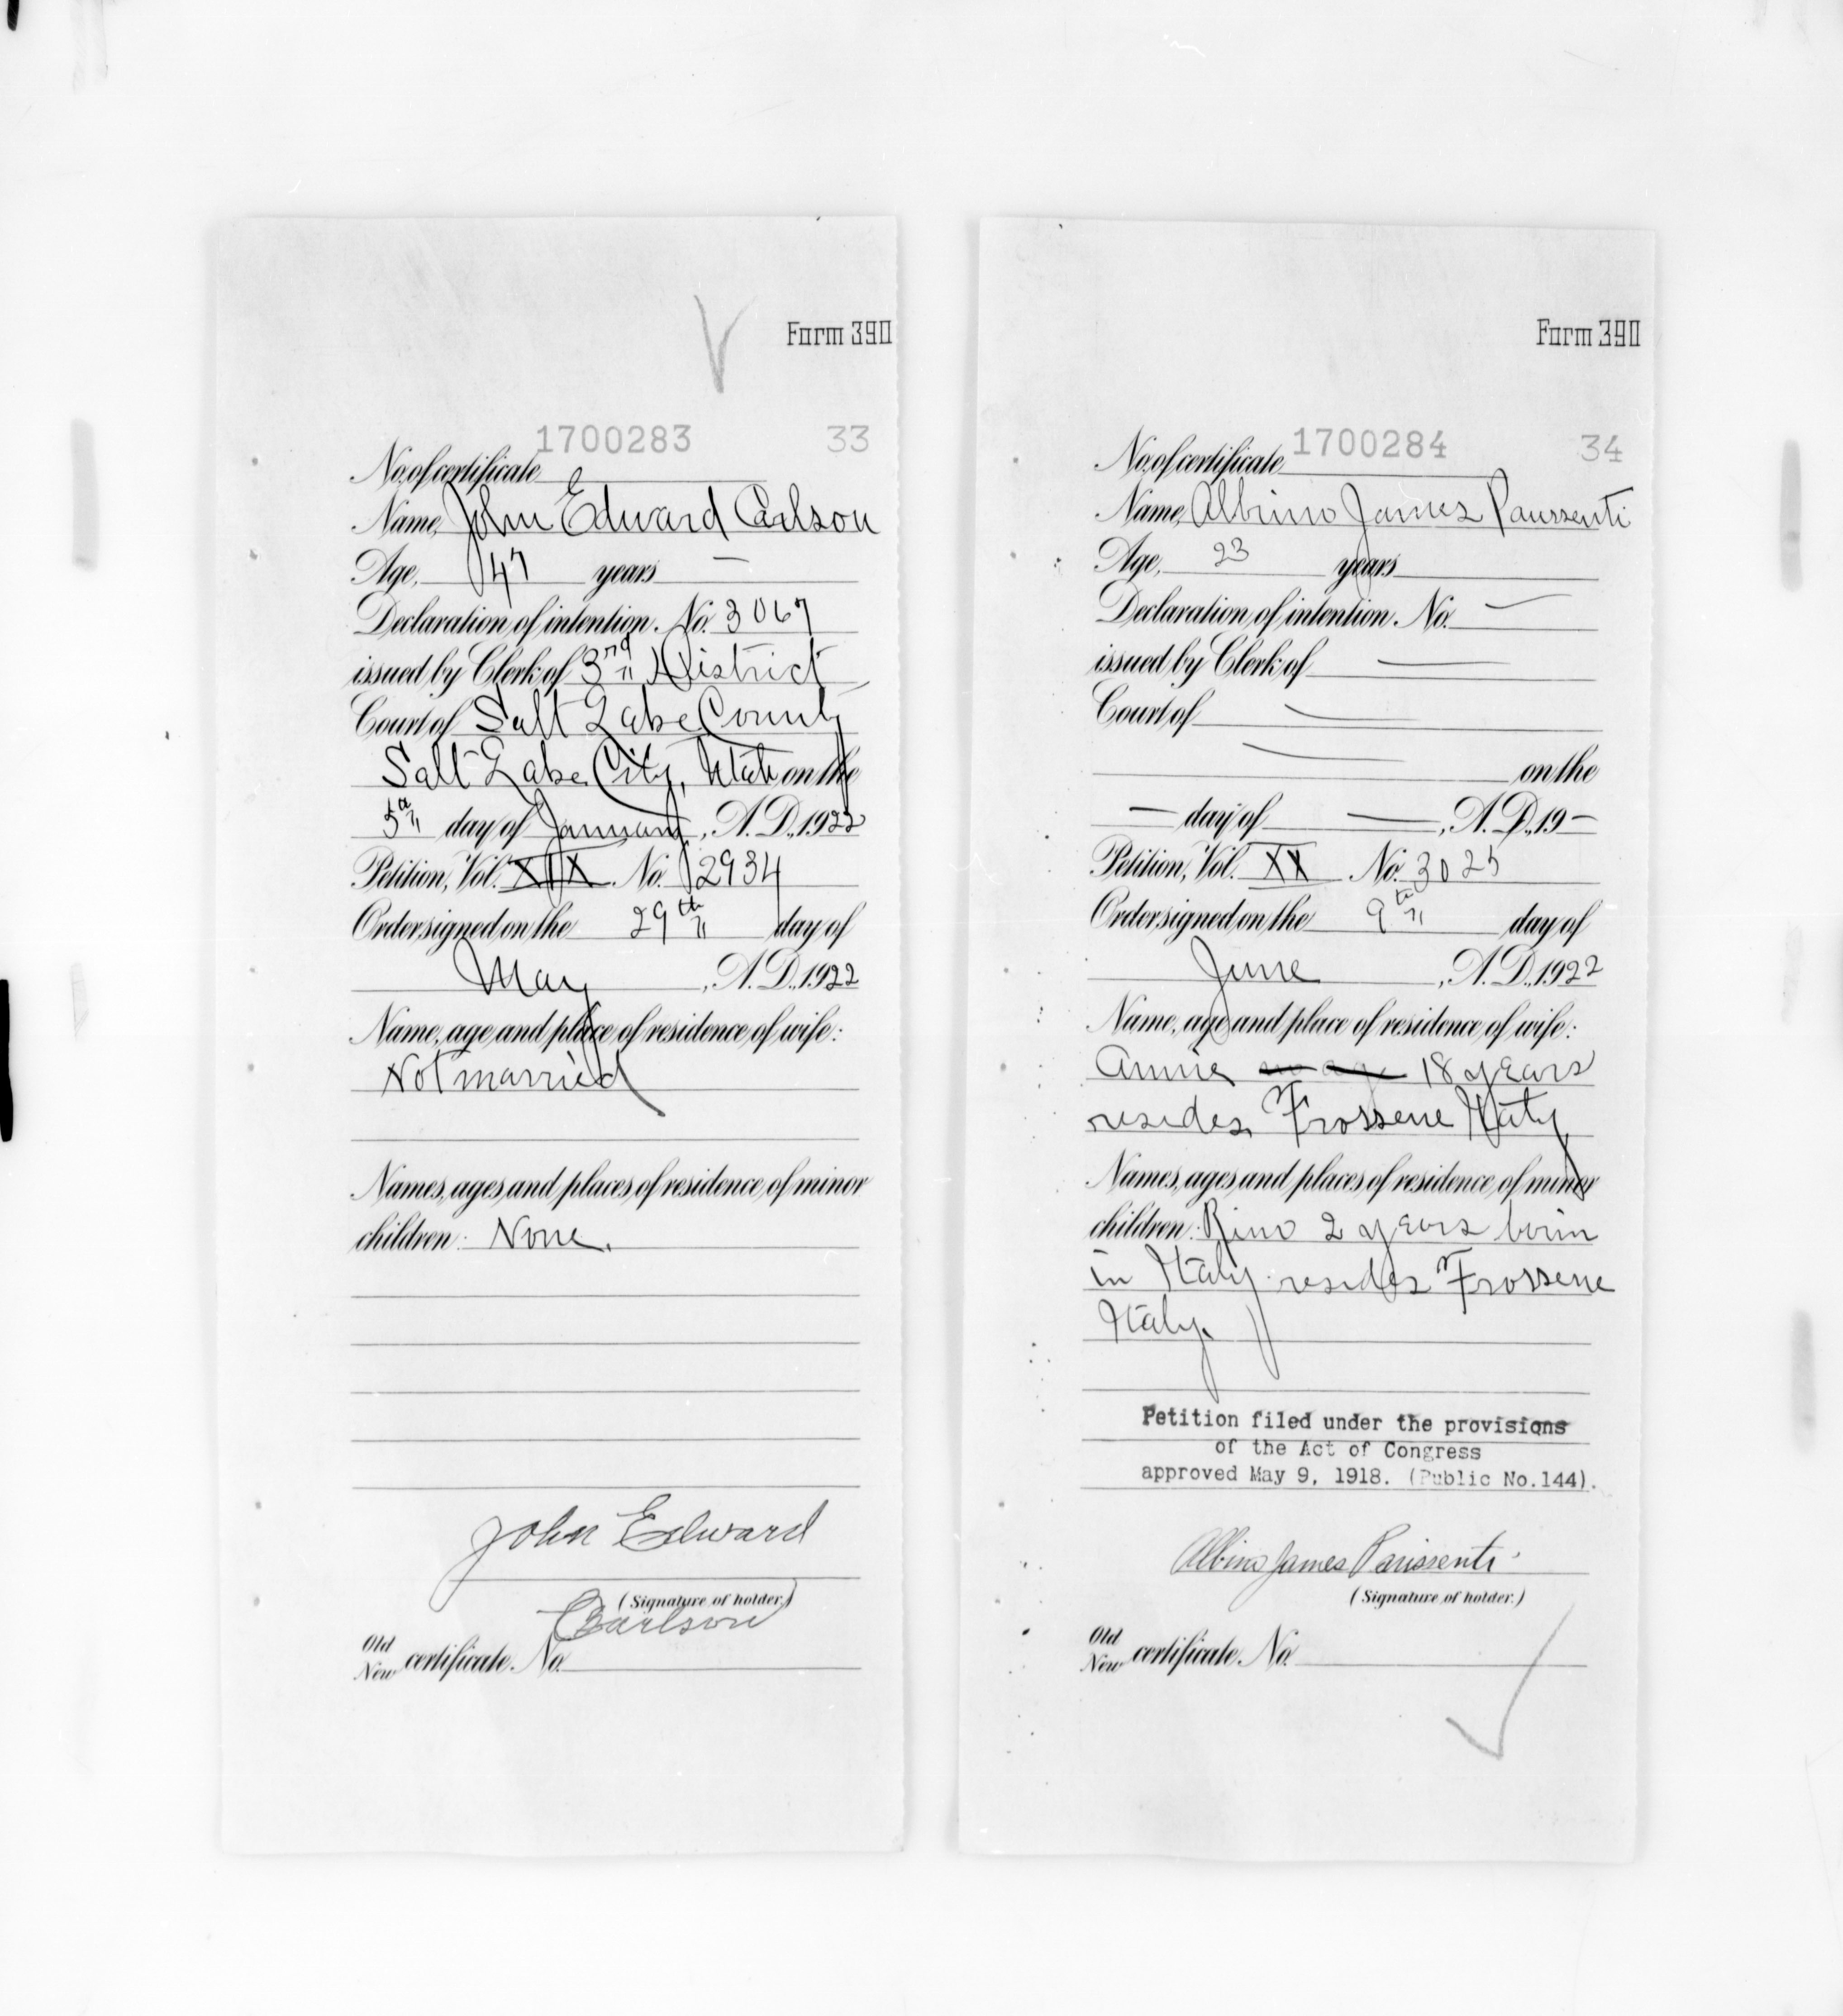 Form 390
1700283 33
No. of certificate
Name, John Edward Carlson
Age, 47 years —
Declaration of intention, No. 3067
issued by Clerk of 3rd District
Court of Salt Lake County
Salt Lake City, Utah on the
5th day of January, A.D., 1922
Petition, Vol. XIX No. 2934
Order signed on the 29th day of
May, A.D., 1922
Name, age and place of residence of wife:
Not married
Names, ages and places of residence of minor
children: None.
John Edward
(Signature of holder.)
Carlson
Old
New certificate No.
Form 390
1700284 34
No. of certificate
Name, Albino James Parissenti
Age, 23 years
Declaration of intention, No. —
issued by Clerk of —
Court of —
— on the
— day of —, A.D., 19—
Petition, Vol. XX No. 3025
Order signed on the 9th day of
June, A.D., 1922
Name, age and place of residence of wife:
Annie no age 18 years
resides Frossene Italy
Names, ages and places of residence of minor
children: Rino 2 years born
in Italy resides Frossene
Italy.
Petition filed under the provisions
of the Act of Congress
approved May 9, 1918. (Public No.144).
Albino James Parissenti
(Signature of holder.)
Old
New certificate No.